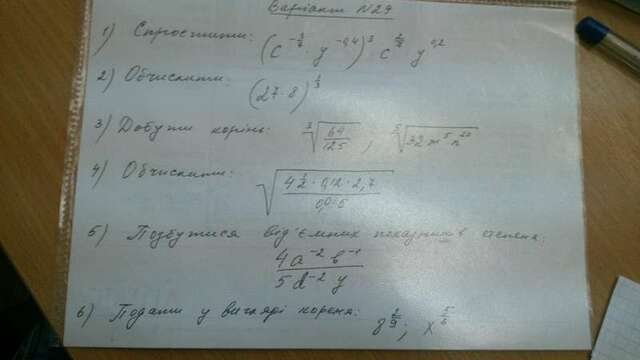 Варіант N29
1) Спростити: (c^{-\frac{3}{4}} · y^{-0,4})^3 c^{\frac{2}{4}} · y^{0,2}
2) Обчислити: (27 · 8)^{\frac{1}{3}}
3) Добути корінь: \sqrt[3]{\frac{64}{125}}, \sqrt[5]{32 m^5 n^{20}}
4) Обчислити: \sqrt{\frac{4\frac{1}{2} · 0,12 · 2,7}{}}
5) Позбутися від'ємних показників степеня:
\frac{4a^{-2} b^{-1}}{5d^{-2} y}
6) Подати у вигляді кореня: x^{\frac{5}{6}}